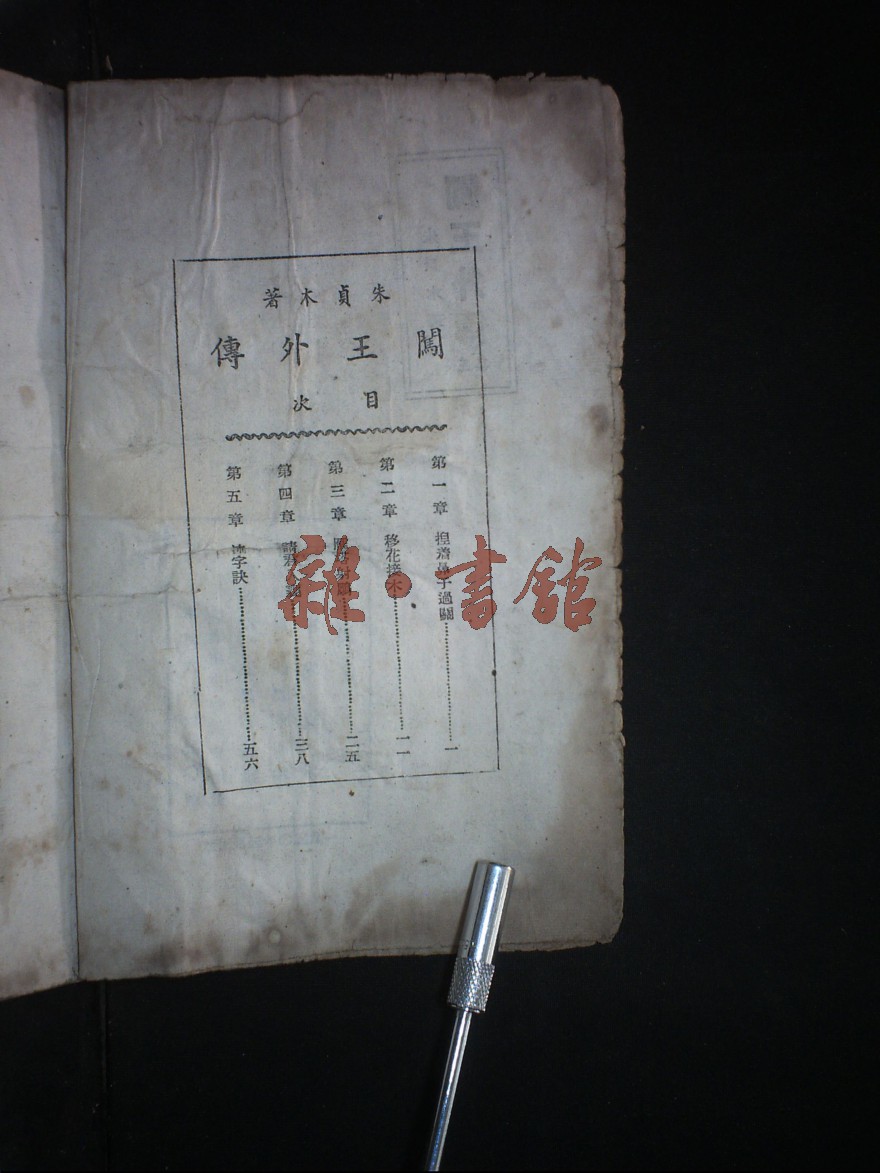 朱貞木著
闖王外傳
目次
第一章 揑着鼻子過關 一
第二章 移花接木 一一
第三章 二五
第四章 三八
第五章 字訣 五六
雜·書館